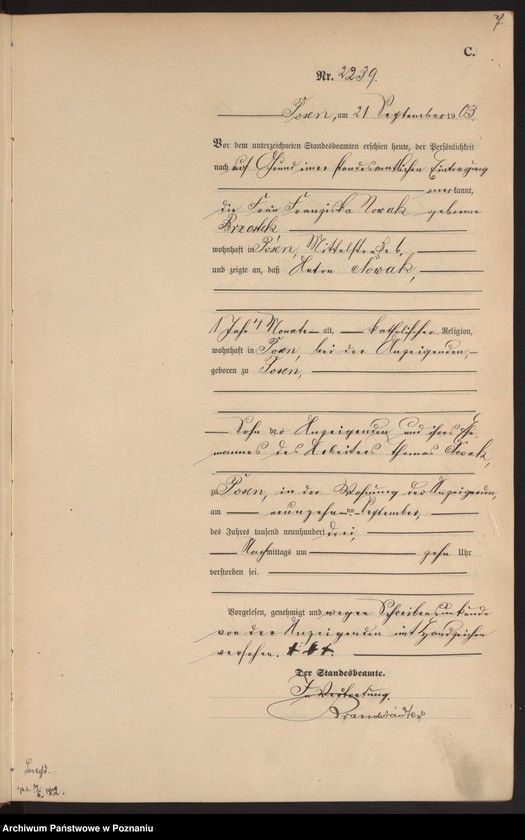 7.
C.
Nr. 2239.
Posen, am 21 September 1903.
Vor dem unterzeichneten Standesbeamten erschien heute, der Persönlichkeit
nach auf Grund einer standesamtlichen Eintragung
anerkannt,
die Frau Franziska Nowak geborene
wohnhaft in Posen, Mittelstraße 6,
und zeigte an, daß Anton Nowak,
1 Jahr 7 Monate alt, katholischer Religion,
wohnhaft in Posen, bei der Anzeigenden,
geboren zu Posen,
Sohn der Anzeigenden und ihres Ehe
mannes des Arbeiters Thomas Nowak,
zu Posen, in der Wohnung der Anzeigenden,
am neunzehnten September,
des Jahres tausend neunhundert drei,
Nachmittags um zehn Uhr
verstorben sei.
Vorgelesen, genehmigt und wegen Schreibensunkunde
von der Anzeigenden mit Handzeichen
versehen. +++.
Der Standesbeamte.
In Vertretung.
Brandstädter
Archiwum Państwowe w Poznaniu